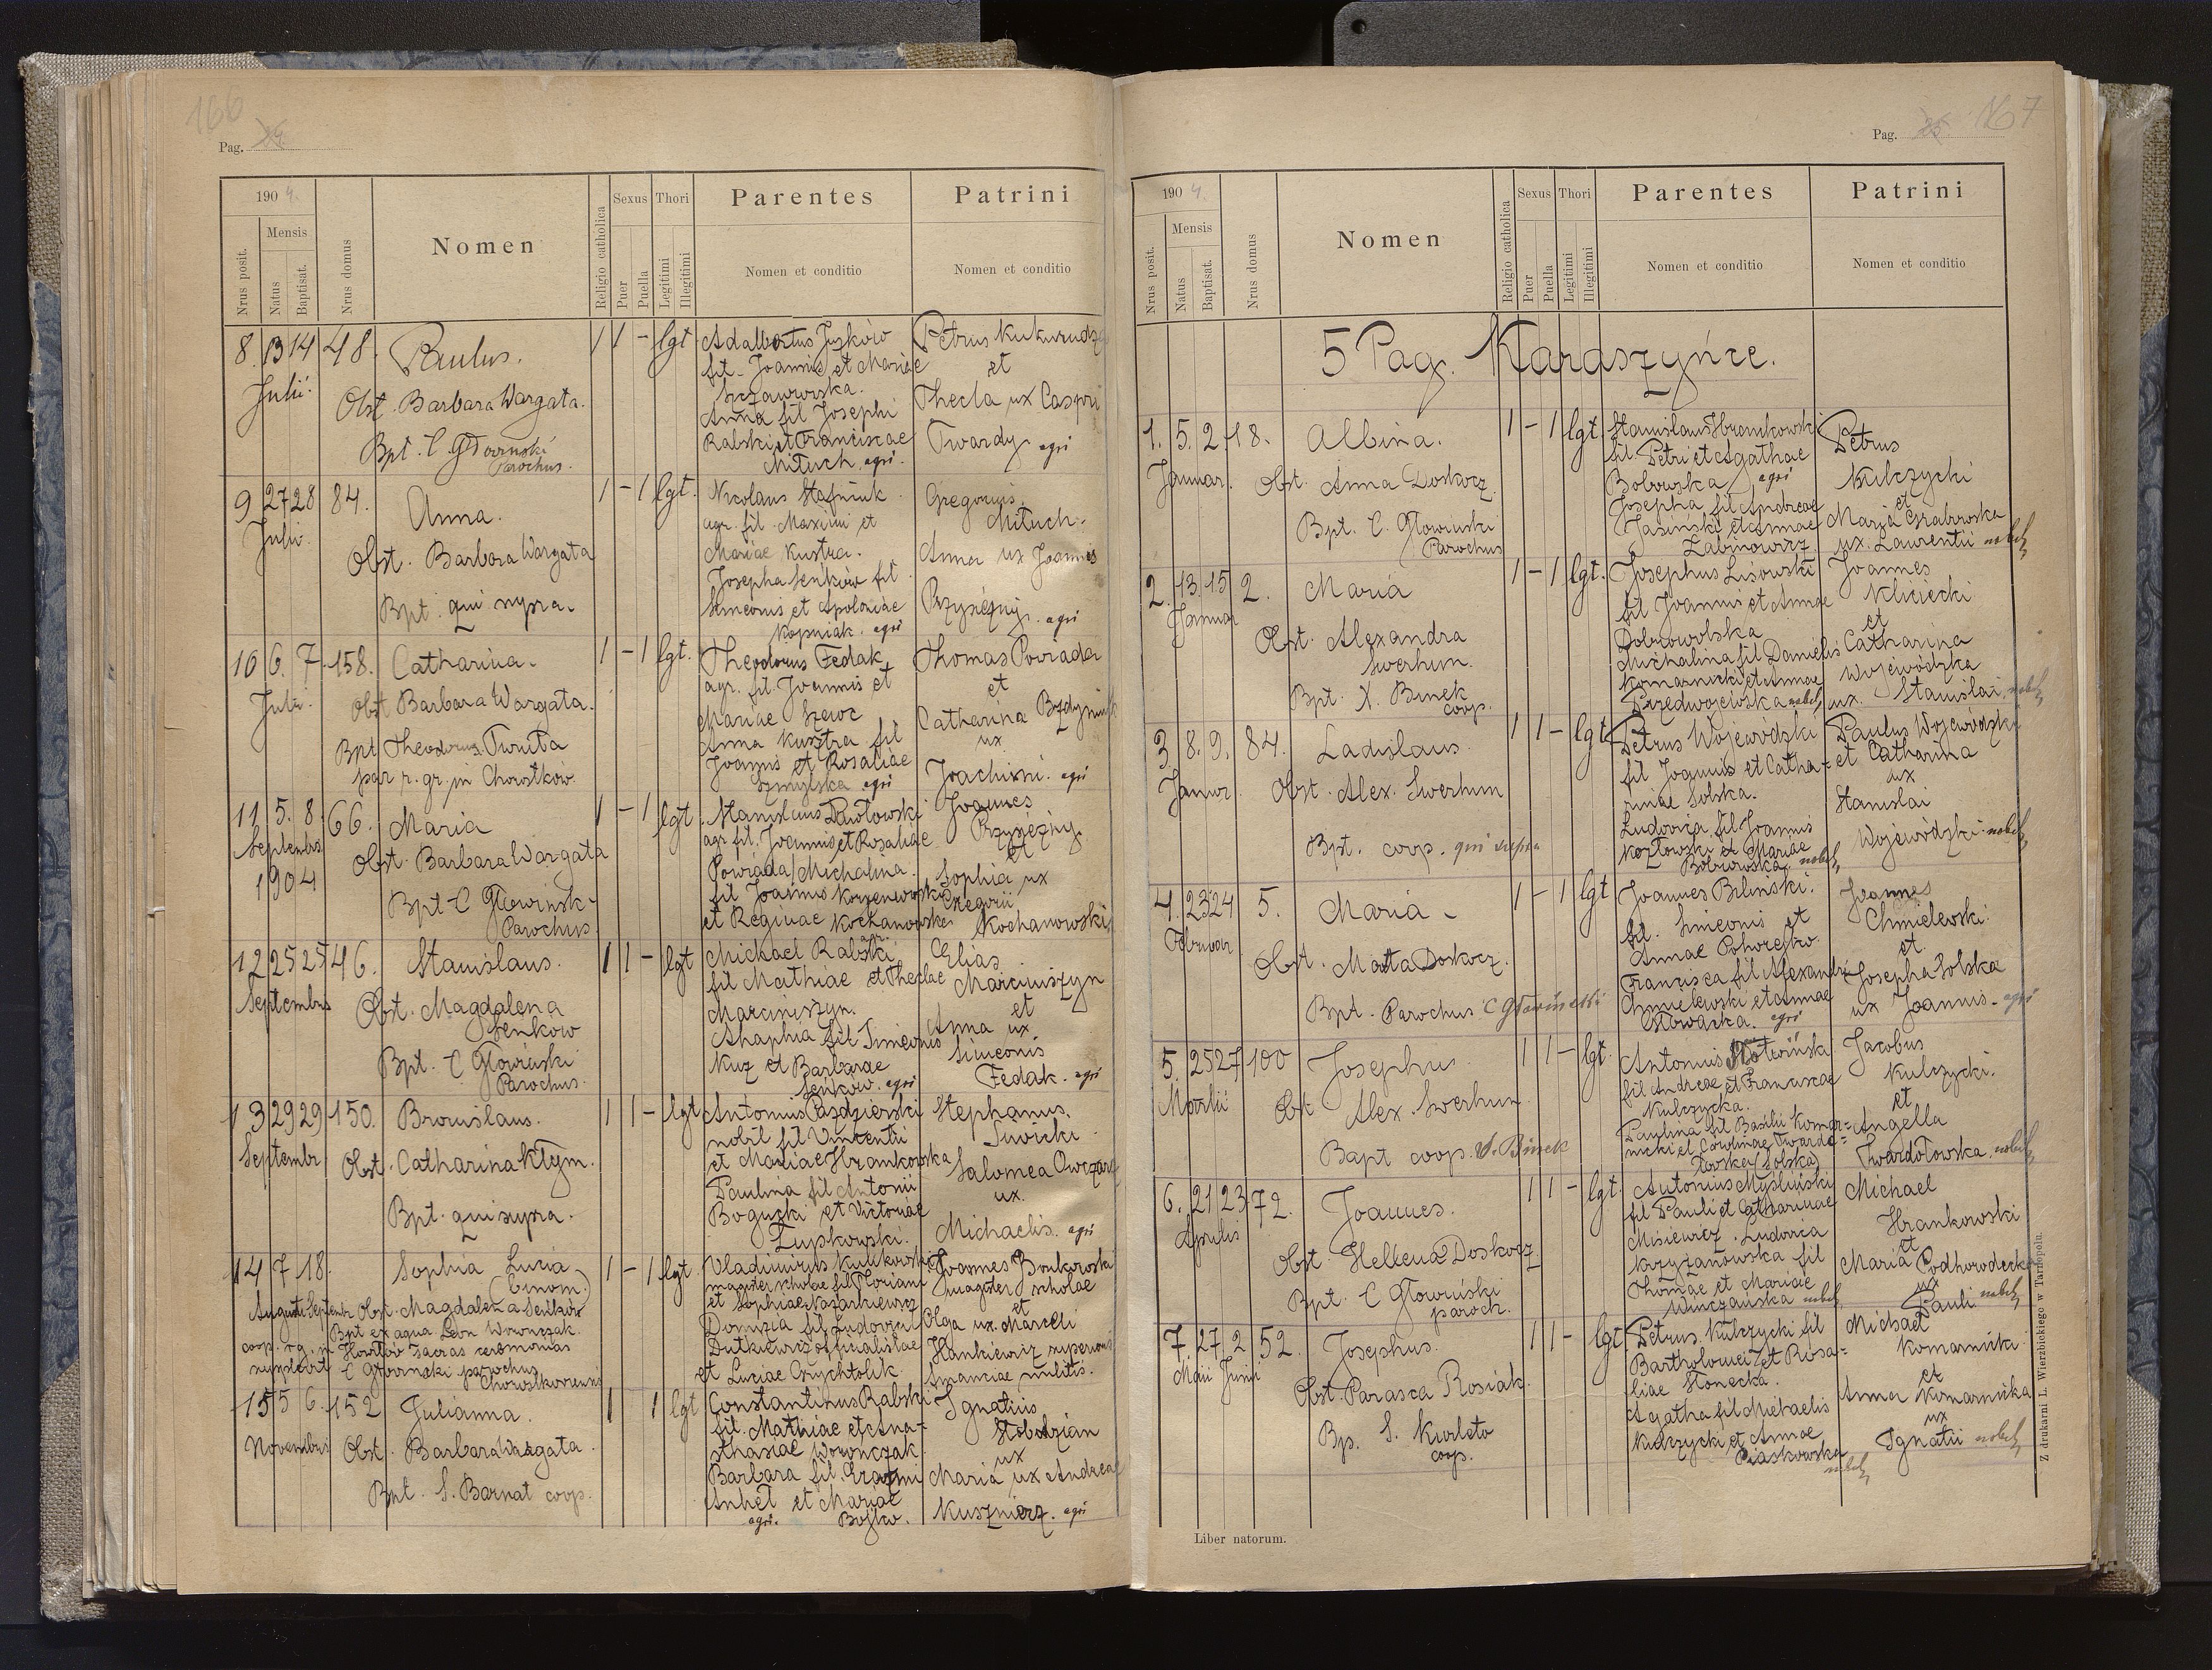 166
Pag.
1904.
Nrus posit.
Mensis
Natus
Baptisat.
Nrus domus
Nomen
Religio catholica
Sexus
Puer
Puella
Thori
Legitimi
Illegitimi
Parentes
Nomen et conditio
Patrini
Nomen et conditio
8. 13 14 48. Paulus. 1 1 - lgt
Julii
Obst. Barbara Wargata.
Bpt. C Głowiński
Parochus.
Adalbertus Juśków
fil. Joannis et Mariae
Szczawurska.
Anna fil Josephi
Rabski et Franciscae
Mituch agri.
Petrus Kukurudza
et
Thecla ux Caspri
Twardy agri
9 27 28 84. Anna. 1 - 1 lgt.
Julii.
Obst. Barbara Wargata
Bpt. qui supra.
Nicolaus Stafniuk
agr. fil. Maximi et
Mariae Kustra.
Josepha Seńków fil
Simeonis et Apoloniae
Kopniak. agri
Gregorius
Mituch.
Anna ux Joannis
Przysiężny. agri
10 6. 7. 158. Catharina. 1 - 1 lgt.
Julii.
Obst Barbara Wargata.
Bpt Theodorus Turuta
par r. gr. in Chorostków.
Theodorus Fedak
agr. fil. Joannis et
Mariae Szewc
Anna Kustra fil
Joannis et Rosaliae
agri
Thomas Powrada
et
Catharina
ux
Joachimi. agri
11 5. 8. 66. Maria 1 - 1 lgt.
Septembris
1904
Obst. Barbara Wargata
Bpt C Głowiński
Parochus
Stanislaus Pawłowski
agr fil. Joannis et Rosaliae
Powrada / Michalina
fil Joannis
et Reginae Kochanowska
Joannes
Przysiężny
et
Sophia ux
Gregorii
Kochanowski
12 25 25 46. Stanislaus. 1 1 - lgt
Septembris
Obst. Magdalena
Seńków
Bpt. C Głowiński
Parochus.
Michael Rabski
fil Mathiae et Theclae
Marciniszyn.
Ahaphia fil Simeonis
Kuz et Barbarae
Seńków. agri
Elias
Marciniszyn
et
Anna ux
Simeonis
Fedak. agri
13 29 29 150. Bronislaus. 1 1 - lgt
Septembr
Obst. Catharina Kłym.
Bpt. qui supra.
Antonius Paździerski
nobil fil Vincentii
et Mariae Hramkowska
Paulina fil Antonii
Bogucki et Victoriae
Łupkowski.
Stephanus
Suwicki
Salomea Owczarz
ux.
Michaelis. agri
14 7 18. Sophia Lucia 1 - 1 lgt
(binom.)
Augusti Septembr Obst. Magdalena Seńków
Bpt ex aqua Leon Worończak
coop. r.g. in Howiłów sacras ceremonias
supplevit C Głowiński parochus
Chorostkoviensis
Vladimirus Kulikowski
magister scholae fil Floriani
et Sophiae Nazarkiewicz
Domizia fil Ludovici
Dutkiewicz officialis
et Luciae Czychtolik
Joannes Bonkowski
magister scholae
et
Olga ux. Marcelli
Hankiewicz
15 5 6. 152 Julianna. 1 1 lgt
Novembris
Obst. Barbara Wargata.
Bpt. S. Barnat coop.
Constantinus Rabski
fil. Mathiae et Ana-
sthasiae Worończak.
Barbara fil. Erazmi
Anhel et Mariae
agri. Bojko.
Ignatius
Słobodzian
ux
Maria ux Andreae
Kusznierz. agri
167
Pag.
1904.
Nrus posit.
Mensis
Natus
Baptisat.
Nrus domus
Nomen
Religio catholica
Sexus
Puer
Puella
Thori
Legitimi
Illegitimi
Parentes
Nomen et conditio
Patrini
Nomen et conditio
5 Pag. Karaszyńce.
1. 5. 2. 18. Albina. 1 - 1 lgt.
Januar.
Obst. Anna Doskocz.
Bpt. C. Głowiński
Parochus
Stanislaus Hramkowski
fil. Petri et Agathae
Bobowska agri
Josepha fil Andreae
Jasiński et Annae
Żabinowicz.
Petrus
Kulczycki
et
Maria Grabowska
ux. Laurentii nobil
2. 13. 15 2. Maria 1 - 1 lgt.
Januar
Obst. Alexandra
Swerhun.
Bpt. X. Binek
coop.
Josephus Lisowski
fil Joannis et Annae
Dobrowolska
Michalina fil Danielis
Komarnicki et Annae
Przedwojewska nobil
Joannes
Klisiecki
et
Catharina
Wojewódzka
ux. Stanislai nobil
3. 8. 9. 84. Ladislaus. 1 1 - lgt
Januar
Obst. Alex. Swerhun
Bpt. coop. qui supra
Petrus Wojewódski
fil Joannis et Catha-
rinae Solska.
Ludovica fil Joannis
Kozłowski et Mariae
Bobrowska nobil
Paulus Wojewódzki
et Catharina
ux
Stanislai
Wojewódzki nobil
4. 23 24 5. Maria 1 - 1 lgt
Februar
Obst. Marta Doskocz.
Bpt. Parochus C Głowiński
Joannes Biliński.
fil. Simeonis et
Annae
Francisca fil Alexandri
Chmielewski et Annae
Nowacka. agri
Joannes
Chmielewski
et
Josepha Solska
ux Joannis. agri
5. 25 27 100 Josephus 1 1 - lgt.
Martii
Obst Alex. Swerhun
Bapt coop. S. Binek
Antonius
fil Andreae et Franciscae
Kulczycka.
Paulina fil Basilii Komar-
nicki et Carolinae Twardo-
łowska (Solska)
Jacobus
Kulczycki.
et
Angella
Twardołowska nobil
6. 21 23 72. Joannes. 1 1 - lgt.
Aprilis
Obst. Hellena Doskocz
Bpt. C Głowiński
paroch.
Antonius Mysliński
fil Pauli et Catharinae
Misiewicz. Ludovica
Krzyżanowska fil
Thomae et Mariae
Winczańska nobil
Michael
Hrankowski
et
Maria Podhorodecka
ux
Pauli nobil
7. 27. 2 52. Josephus. 1 1 - lgt
Maii Junii
Obst. Parasca Rosiak.
Bp. S. Kurleto
coop.
Petrus Kulczycki fil
Bartholomei et Rosa-
liae Słonecka.
Agatha fil Michaelis
Kulczycki et Annae
Piaskowska
nobil
Michael
Komarnicki
et
Anna Komarnicka
ux
Ignatii nobil
Liber natorum.
Z drukarni L. Wierzbickiego w Tarnopolu.